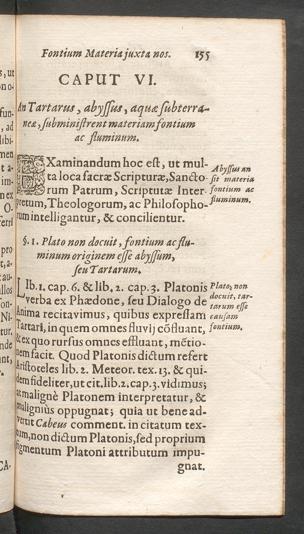 Fontium Materia juxta nos. 155
CAPUT VI.
An Tartarus, abyssus, aquæ subterra-
neæ, subministrent materiam fontium
ac fluminum.
EXaminandum hoc est, ut mul-
ta loca sacræ Scripturæ, Sancto-
rum Patrum, Scripturæ Inter-
pretum, Theologorum, ac Philosopho-
rum intelligantur, & concilientur.
Abyssus an
sit materia
fontium ac
fluminum.
§. 1. Plato non docuit, fontium ac flu-
minum originem esse abyssum,
seu Tartarum.
LIb. 1. cap. 6. & lib. 2. cap. 3. Platonis
verba ex Phædone, seu Dialogo de
Anima recitavimus, quibus expressam
Tartari, in quem omnes fluvij cõfluant,
& ex quo rursus omnes effluant, mẽtio-
nem facit. Quod Platonis dictum refert
Aristoteles lib. 2. Meteor. tex. 13. & qui-
dem fideliter, ut cit. lib. 2. cap. 3. vidimus;
at malignè Platonem interpretatur, &
malignius oppugnat; quia ut bene ad-
vertit Cabeus comment. in citatum tex-
tum, non dictum Platonis, sed proprium
figmentum Platoni attributum impu-
gnat.
Plato, non
docuit, tar-
tarum esse
causam
fontium.